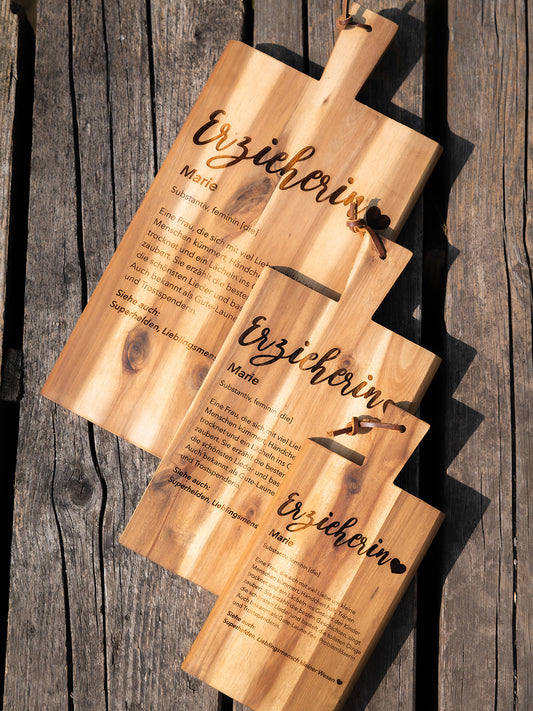 Erzicherin
Marie
Substantiv, feminin [die]
Eine Frau, die sich mit viel Liebe
Menschen kümmert, Händchen
trocknet und ein Lächeln ins
zaubert. Sie erzählt die besten
die schönsten Lieder und bas
Auch bekannt als Gute-Laune
und Trostspenderin.
Siehe auch:
Superhelden, Lieblingsmens
Erzieherin
Marie
Substantiv, feminin [die]
Eine Frau, die sich mit viel Lie
Menschen kümmert, Händchen
trocknet und ein Lächeln ins G
zaubert. Sie erzählt die besten
die schönsten Lieder und bas
Auch bekannt als Gute-Laune
und Trostspenderin.
Siehe auch:
Superhelden, Lieblingsmens
Erzieherin
Marie
Substantiv, feminin [die]
Eine Frau, die sich mit viel Liebe um kleine
Menschen kümmert, Händchen hält, Tränen
trocknet und ein Lächeln ins Gesicht der Kinder
zaubert. Sie erzählt die besten Geschichten, singt
die schönsten Lieder und bastelt die tollsten Dinge.
Auch bekannt als Gute-Laune-Fee, Problemlöserin
und Trostspenderin.
Siehe auch:
Superhelden, Lieblingsmensch kleiner Wesen